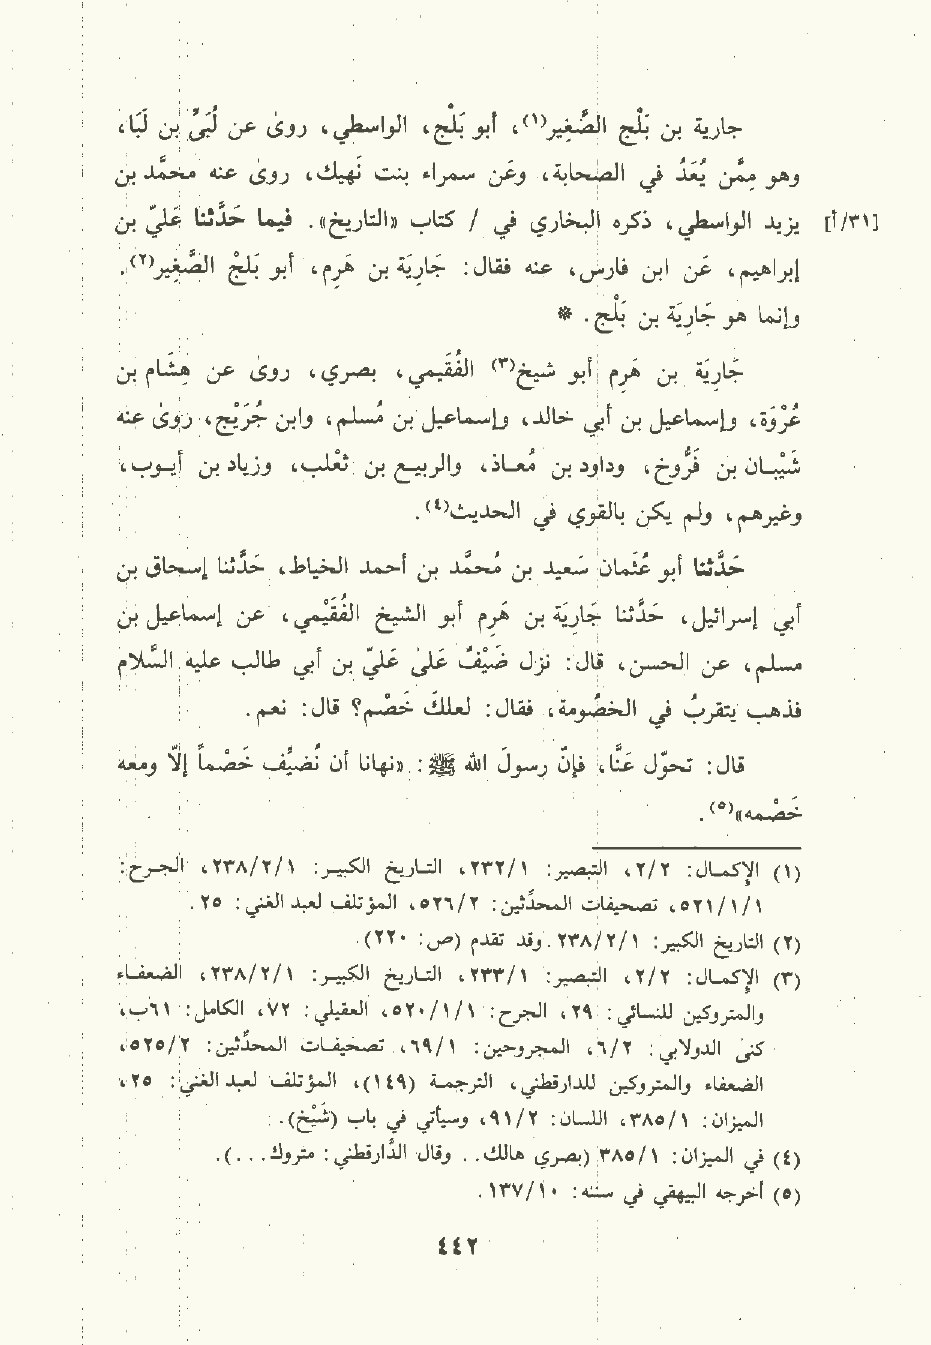 جارية بن بَلْج الصَّغِير(١)، أبو بَلْج، الواسطي، روىٰ عن لُبَيِّ بن لَبَا،
وهو مِمَّن يُعَدُ في الصحابة، وعَن سمراء بنت نَهيك، روىٰ عنه محمَّد بن
[٣١/أ] يزيد الواسطي، ذكره البخاري في / كتاب «التاريخ». فيما حَدَّثنا عَليّ بن
إبراهيم، عَن ابن فارس، عنه فقال: جَارِيَة بن هَرِم، أبو بَلْج الصَّغِير(٢).
وإنما هو جَارِيَة بن بَلْج. *
جَارِيَة بن هَرِم أبو شيخ(٣) الفُقَيمي، بصري، روىٰ عن هِشَام بن
عُرْوَة، وإسماعيل بن أبي خالد، وإسماعيل بن مُسلم، وابن جُرَيْج، روىٰ عنه
شَيْبَـان بن فَرُّوخ، وداود بن مُعـاذ، والربيـع بن ثعْلب، وزياد بن أيـوب،
وغيرهم، ولم يكن بالقوي في الحديث(٤).
حَدَّثنا أبو عُثَمان سَعيد بن مُحمَّد بن أحمد الخياط، حَدَّثنا إسحاق بن
أبي إسرائيل، حَدَّثنا جَارِيَة بن هَرِم أبو الشيخ الفُقَيْمي، عن إسماعيل بن
مسلم، عن الحسن، قال: نزل ضَيْفٌ عَلىٰ عَليّ بن أبي طالب عليه السَّلام
فذهب يتقربُ في الخصُومة، فقال: لعلكَ خَصْم؟ قال: نعم.
قال: تحوّل عَنَّا، فإنّ رسولَ الله ﷺ: «نهانا أن نُضيِّف خَصْماً إلّا ومعه
خَصْمه»(٥).
(١) الإكمـال: ٢/٢، التبصير: ٢٣٢/١، التـاريخ الكبيـر: ٢٣٨/٢/١، الجـرح:
٥٢١/١/١، تصحيفات المحدِّثين: ٥٢٦/٢، المؤتلف لعبد الغني: ٢٥.
(٢) التاريخ الكبير: ٢٣٨/٢/١. وقد تقدم (ص: ٢٢٠).
(٣) الإكمـال: ٢/٢، التبصير: ٢٣٣/١، التـاريخ الكبيـر: ٢٣٨/٢/١، الضعفـاء
والمتروكين للنسائي: ٢٩، الجرح: ٥٢٠/١/١، العقيلي: ٧٢، الكامل: ٦١ب،
كنىٰ الدولابي: ٦/٢، المجروحين: ٦٩/١، تصحيفات المحدِّثين: ٥٢٥/٢،
الضعفاء والمتروكين للدارقطني، الترجمة (١٤٩)، المؤتلف لعبد الغني: ٢٥،
الميزان: ٣٨٥/١، اللسان: ٩١/٢، وسيأتي في باب (شَيْخ).
(٤) في الميزان: ٣٨٥/١ (بصري هالك.. وقال الدَّارقطني: متروك...).
(٥) أخرجه البيهقي في سننه: ١٣٧/١٠.
٤٤٢